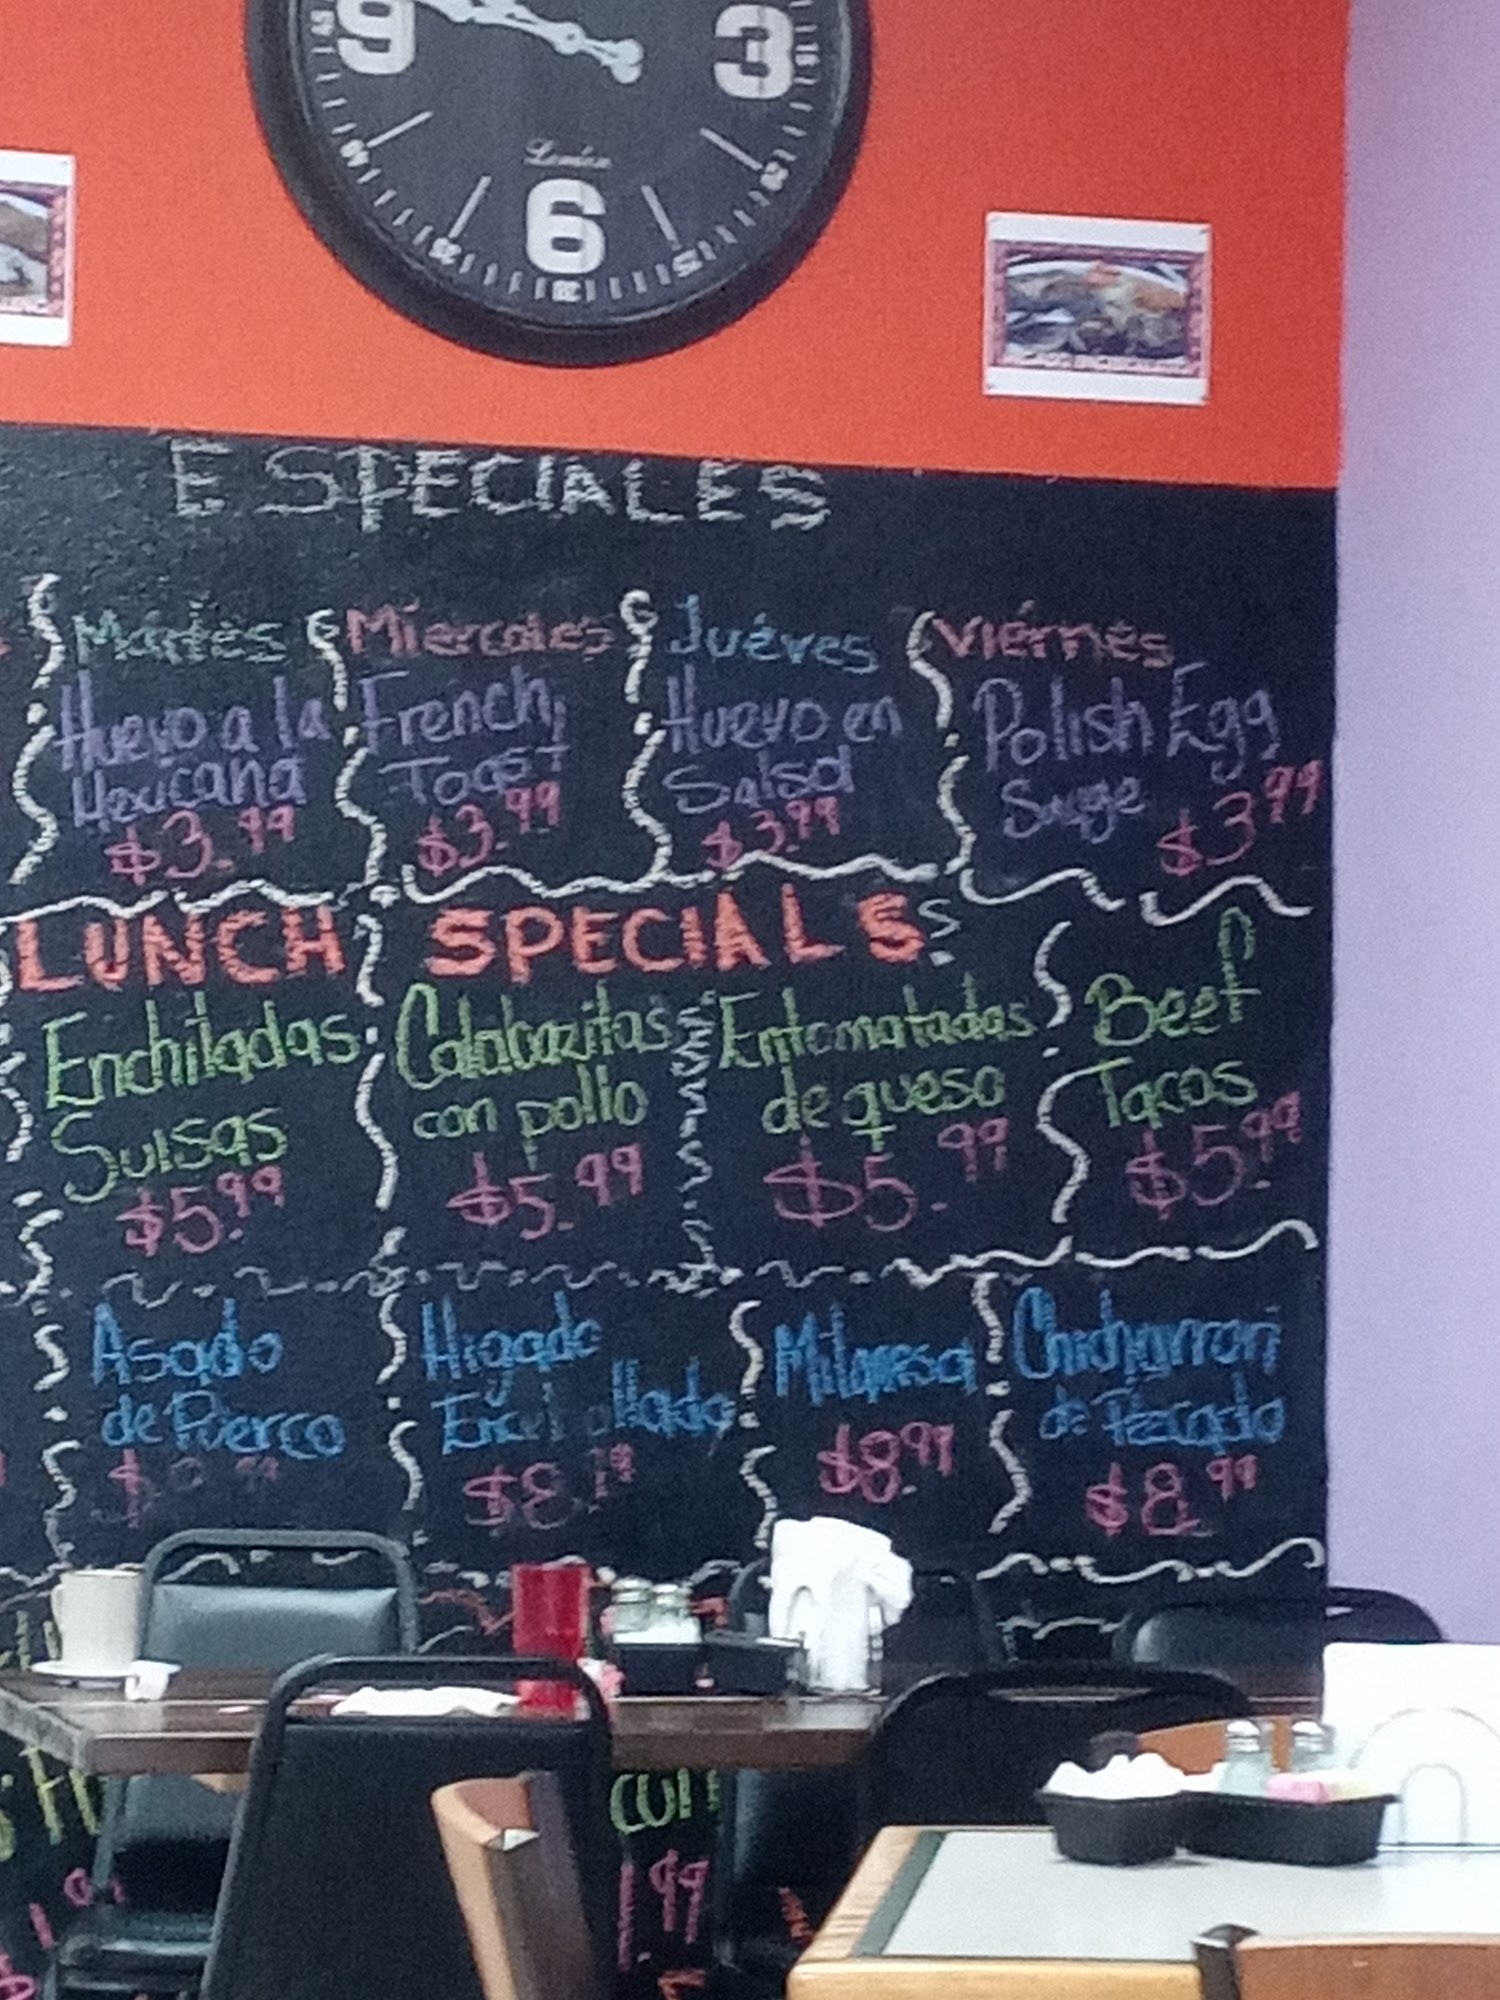 9
3
London
6
ESPECIALES
Martes
Miercoles
Juéves
Viérnes
Huevo a la
Mexicana
$3.99
French
Toast
$3.99
Huevo en
Salsa
$3.99
Polish Egg
$3.99
LUNCH SPECIALS
Enchiladas
Suisas
$5.99
Calabazitas
con pollo
$5.99
Entomatadas
de queso
$5.99
Beef
Tacos
$5.99
Asado
de Puerco
Higado
Milanesa
$8.99
Chicharron
de Pescado
$8.99
con
1.99